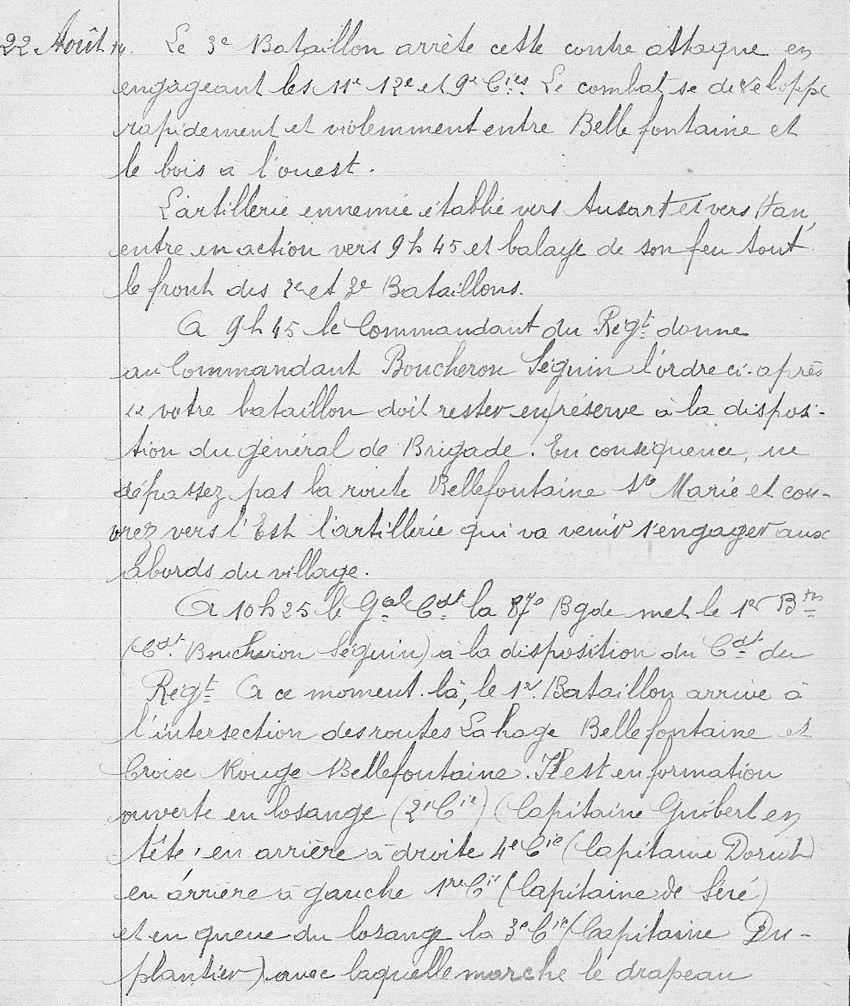 22 Août 14. Le 3e Bataillon arrête cette contre attaque en
engageant les 11e 12e et 9e Cies. Le combat se développe
rapidement et violemment entre Bellefontaine et
le bois à l'ouest.
L'artillerie ennemie établie vers Ansart et vers Han,
entre en action vers 9h45 et balaye de son feu tout
le front des 2e et 3e Bataillons.
A 9h45 le Commandant du Régt donne
au Commandant Boucheron Séguin l'ordre ci-après
" votre bataillon doit rester en réserve à la disposi-
tion du général de Brigade. En conséquence, ne
dépassez pas la route Bellefontaine Ste Marie et cou-
vrez vers l'Est l'artillerie qui va venir s'engager aux
abords du village.
A 10h25 le Gal Cdt la 87e Bgde met le 1er Bton
(Cdt Boucheron Séguin) à la disposition du Cdt du
Régt A ce moment là, le 1er Bataillon arrive à
l'intersection des routes Lahage Bellefontaine et
Croix Rouge Bellefontaine. Il est en formation
ouverte en losange (2e Cie) (Capitaine Guibert en
tête, en arrière à droite 4e Cie (Capitaine
en arrière à gauche 1re Cie (Capitaine de Séré)
et en queue du losange la 3e Cie (Capitaine Du-
plantier) avec laquelle marche le drapeau